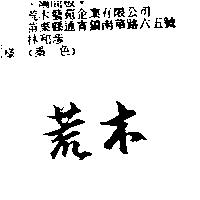 荒木藝苑企業有限公司
苗栗縣通霄鎮南華路六五號
林
樣 （ 色）
荒木